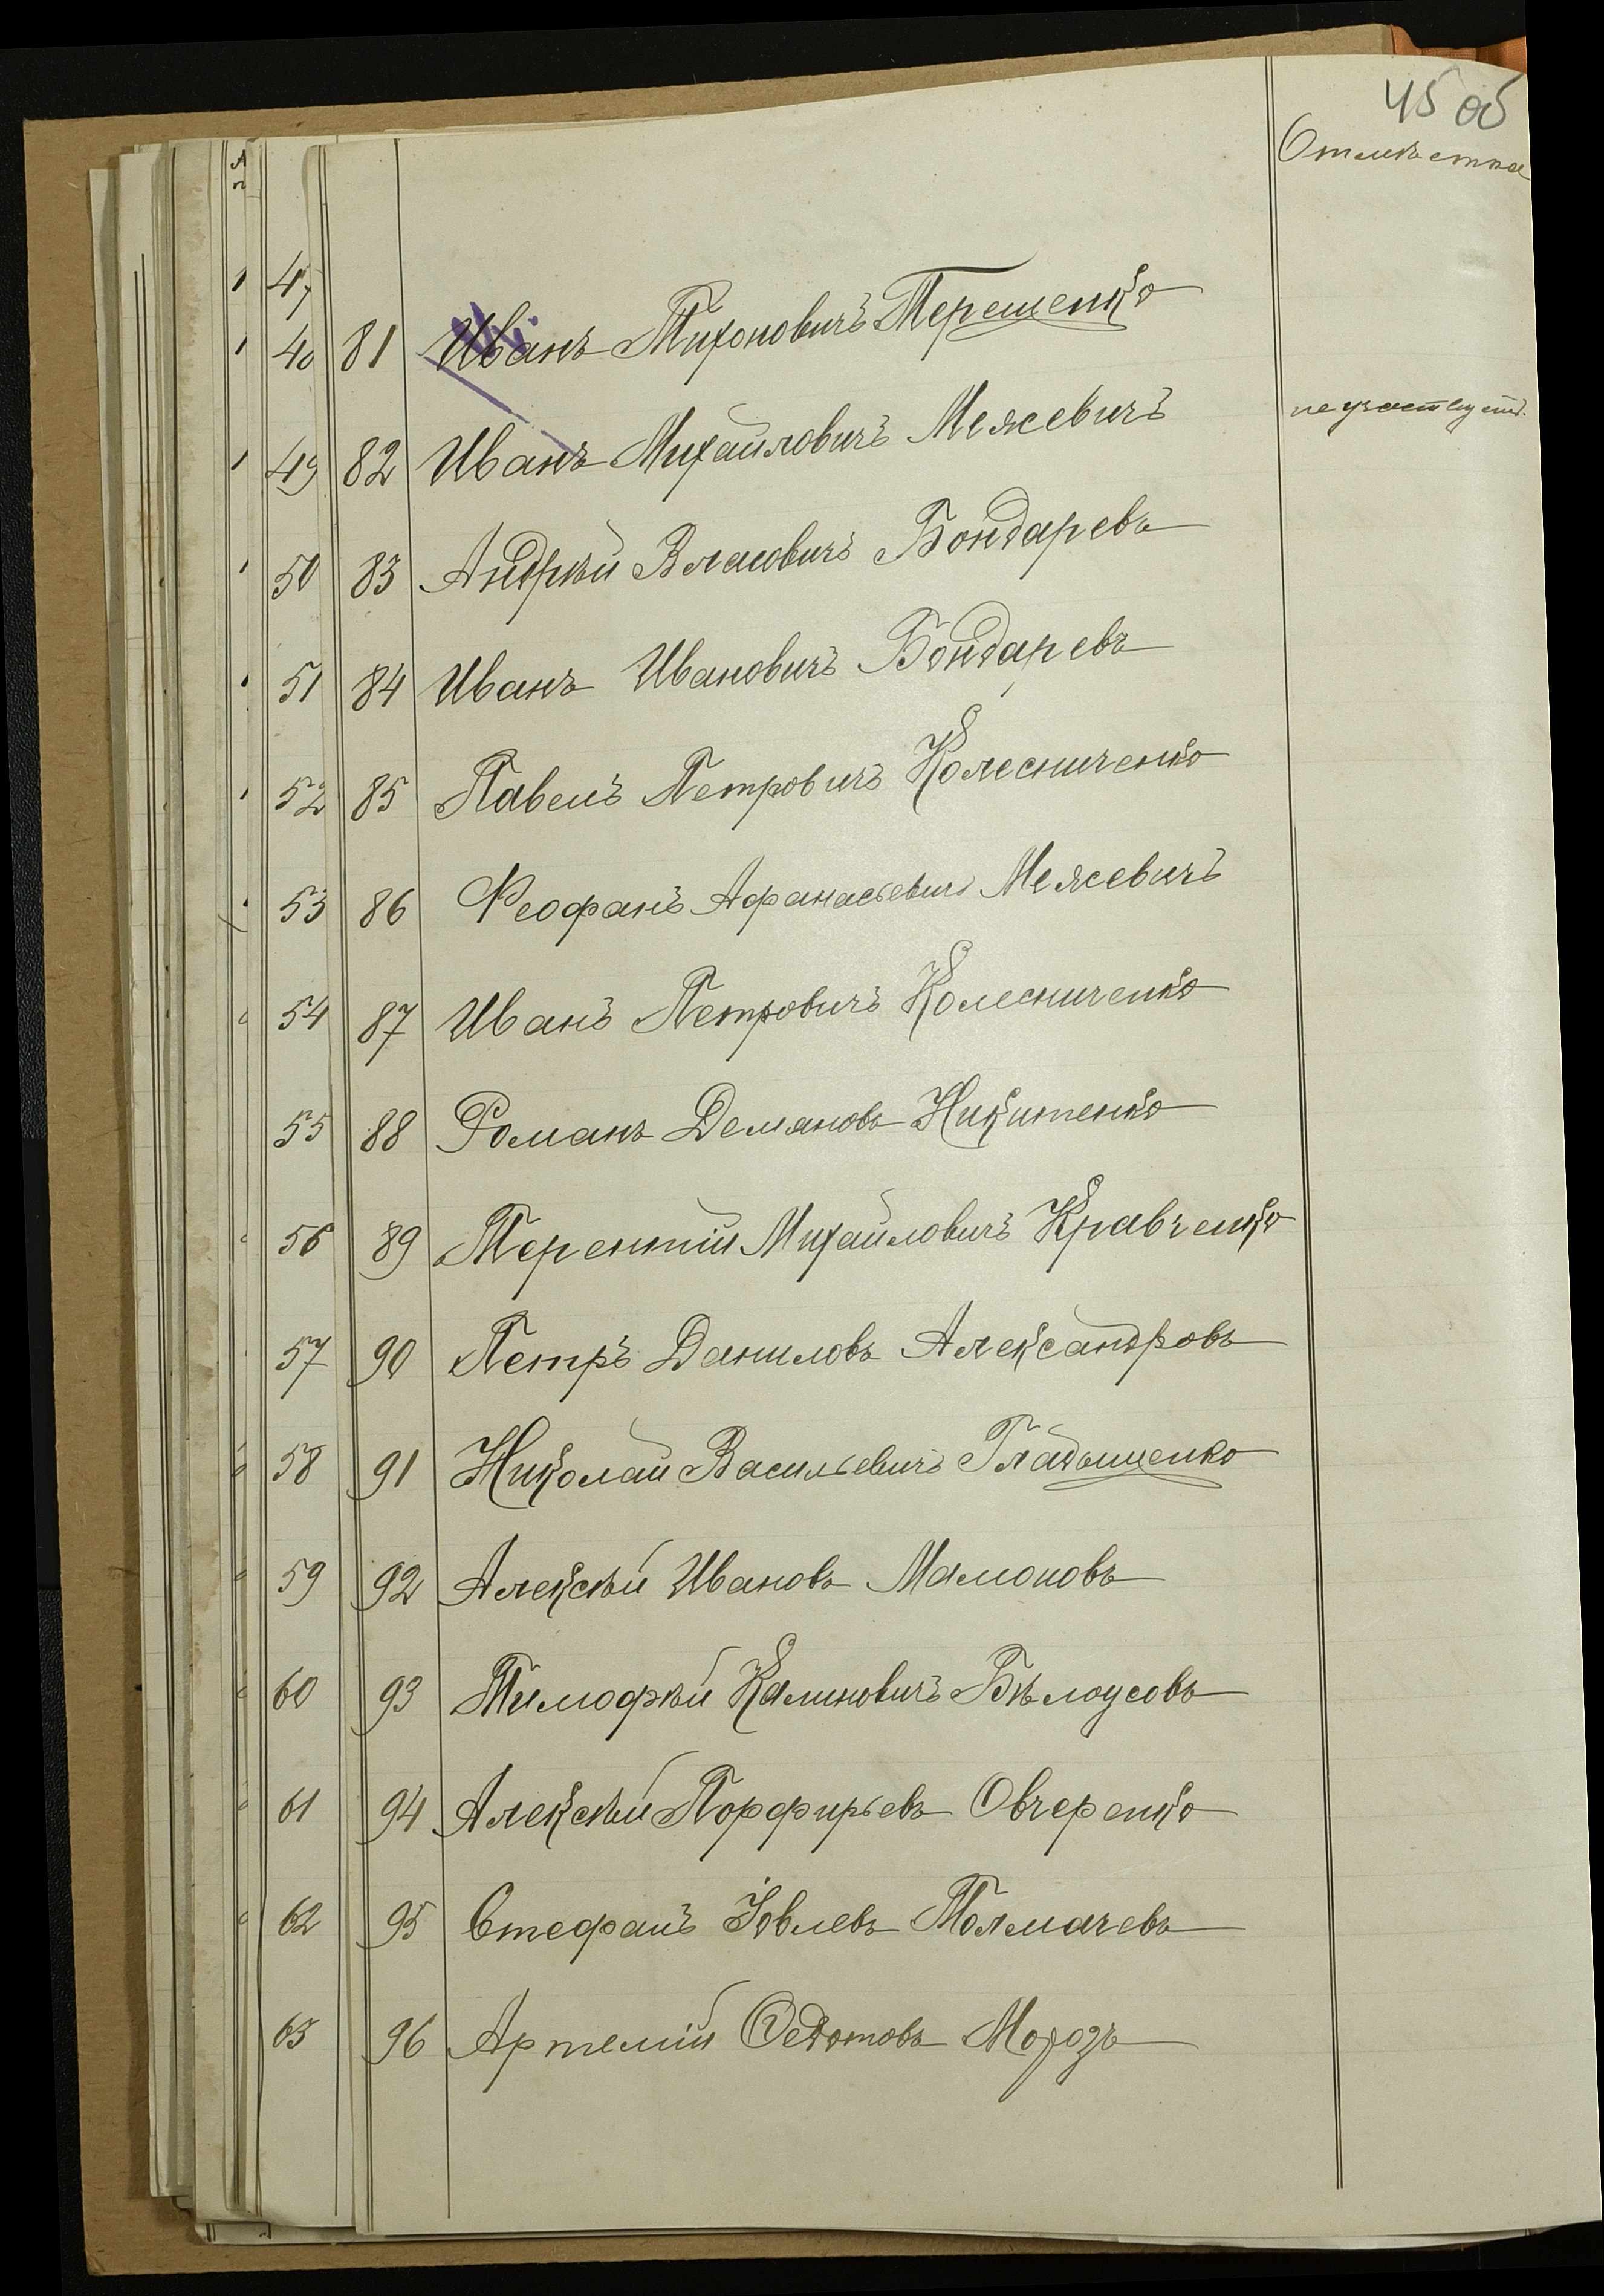 45 об
Отмѣтка
47
48 81 Иванъ Тихоновичъ Терещенко
49 82 Иванъ Михайловичъ Межевичъ не участвуетъ.
50 83 Андрѣй Власовичъ Бондаревъ
51 84 Иванъ Ивановичъ Бондаревъ
52 85 Павелъ Петровичъ Колесниченко
53 86 Феофанъ Афанасьевичъ Межевичъ
54 87 Иванъ Петровичъ Колесниченко
55 88 Романъ Демяновъ Никитенко
56 89 Терентій Михайловичъ Кравченко
57 90 Петръ Даниловъ Александровъ
58 91 Николай Васильевичъ Гладышенко
59 92 Алексѣй Ивановъ Мамоновъ
60 93 Тимофѣй Калиновичъ Бѣлоусовъ
61 94 Алексѣй Порфирьевъ Овчеренко
62 95 Стефанъ Іовлевъ Толмачевъ
63 96 Артемій Федотовъ Морозъ